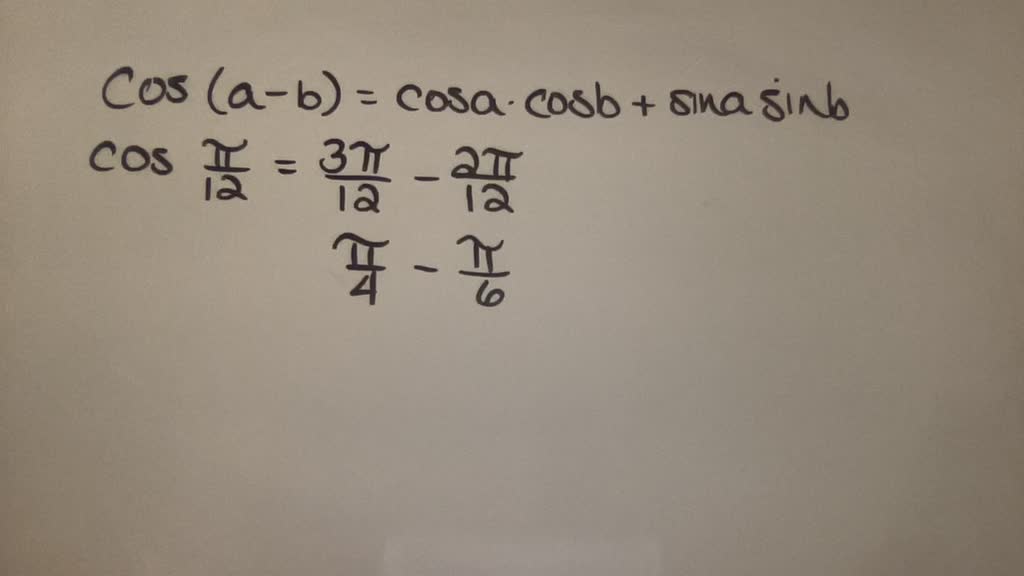 Cos (a-b) = cosa · cosb + sina sinb
cos π/12 = 3π/12 - 2π/12
π/4 - π/6